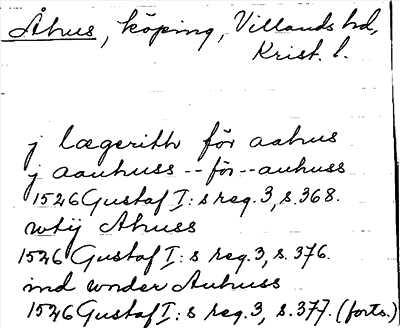 Åhus, köping, Villands hd,
Krist. l.
j lægerith för aahus
j aauhuss -- för -- auhuss
1526 Gustaf I:s reg. 3, s. 368.
wtij Ahuss
1526 Gustaf I:s reg. 3, s. 376.
ind wnder Auhuss
1526 Gustaf I:s reg. 3, s. 377. (forts.)